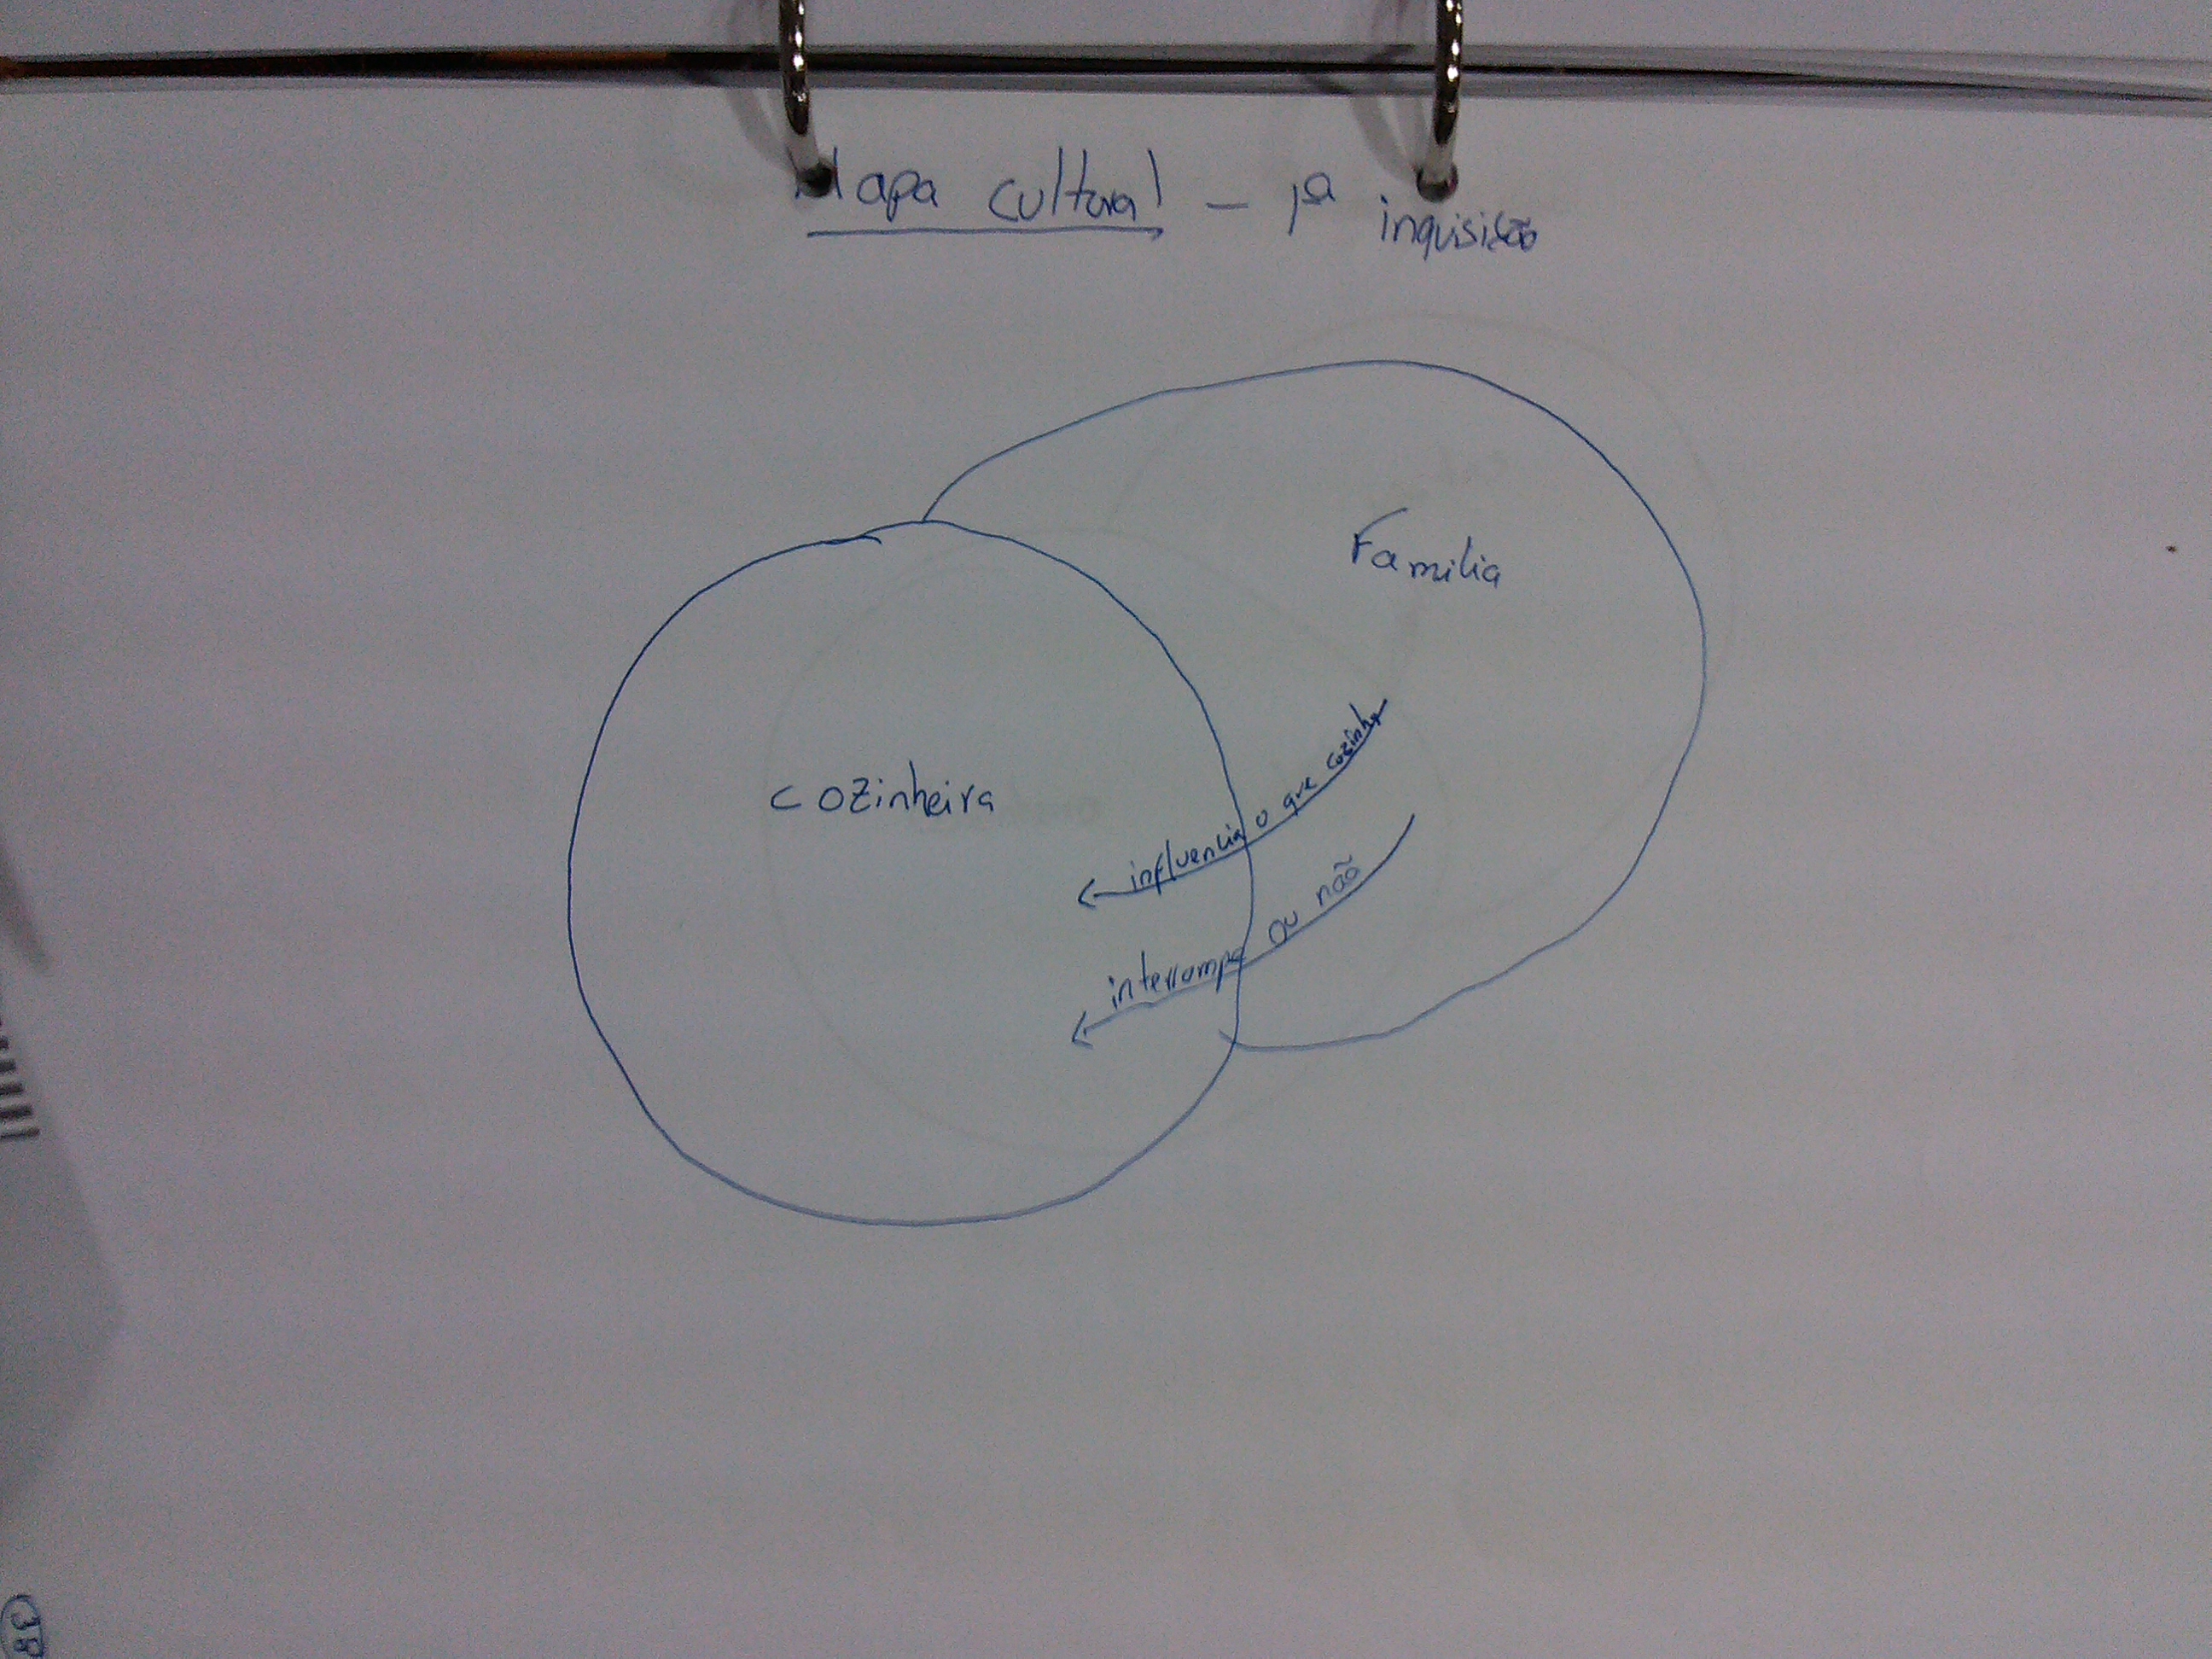 Mapa cultural – 1ª inquisição
Familia
cozinheira
influencia o que cozinha
interrompe ou não
38